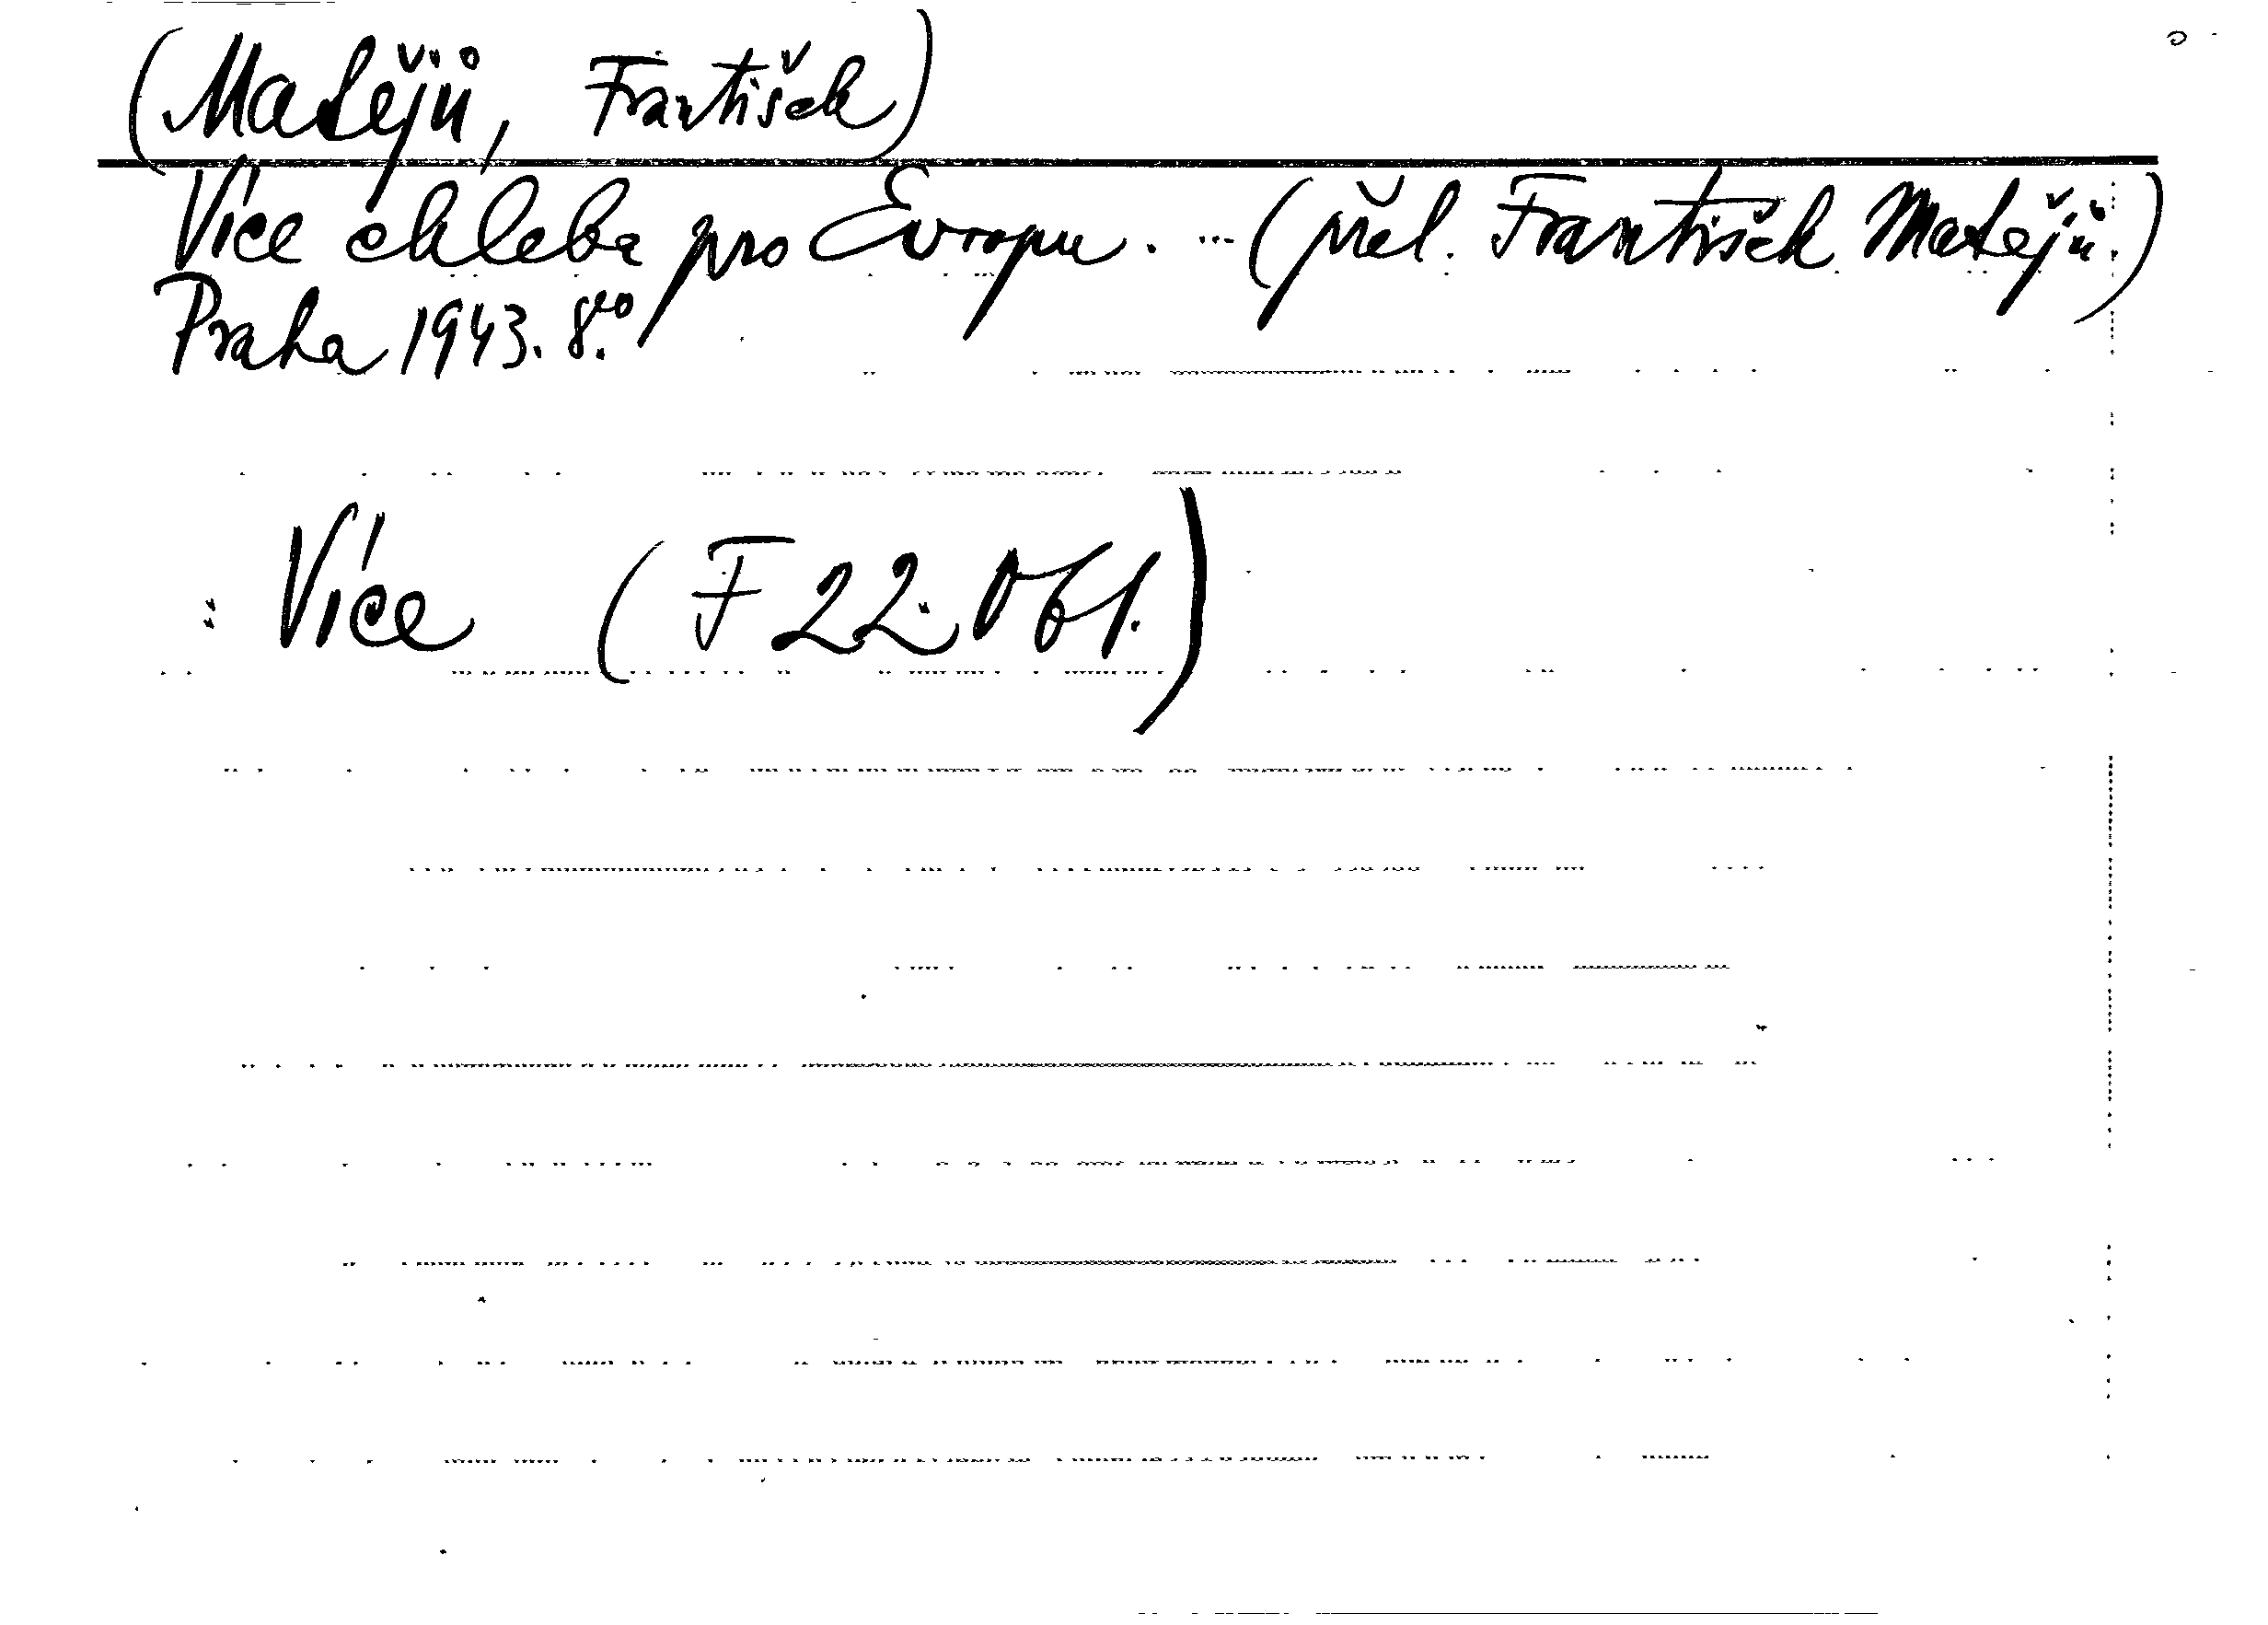 (Matějů, František)
Více chleba pro Evropu. ... (přel. František Matějů.)
Praha 1943. 8.vo
: Více (F 22.061.)